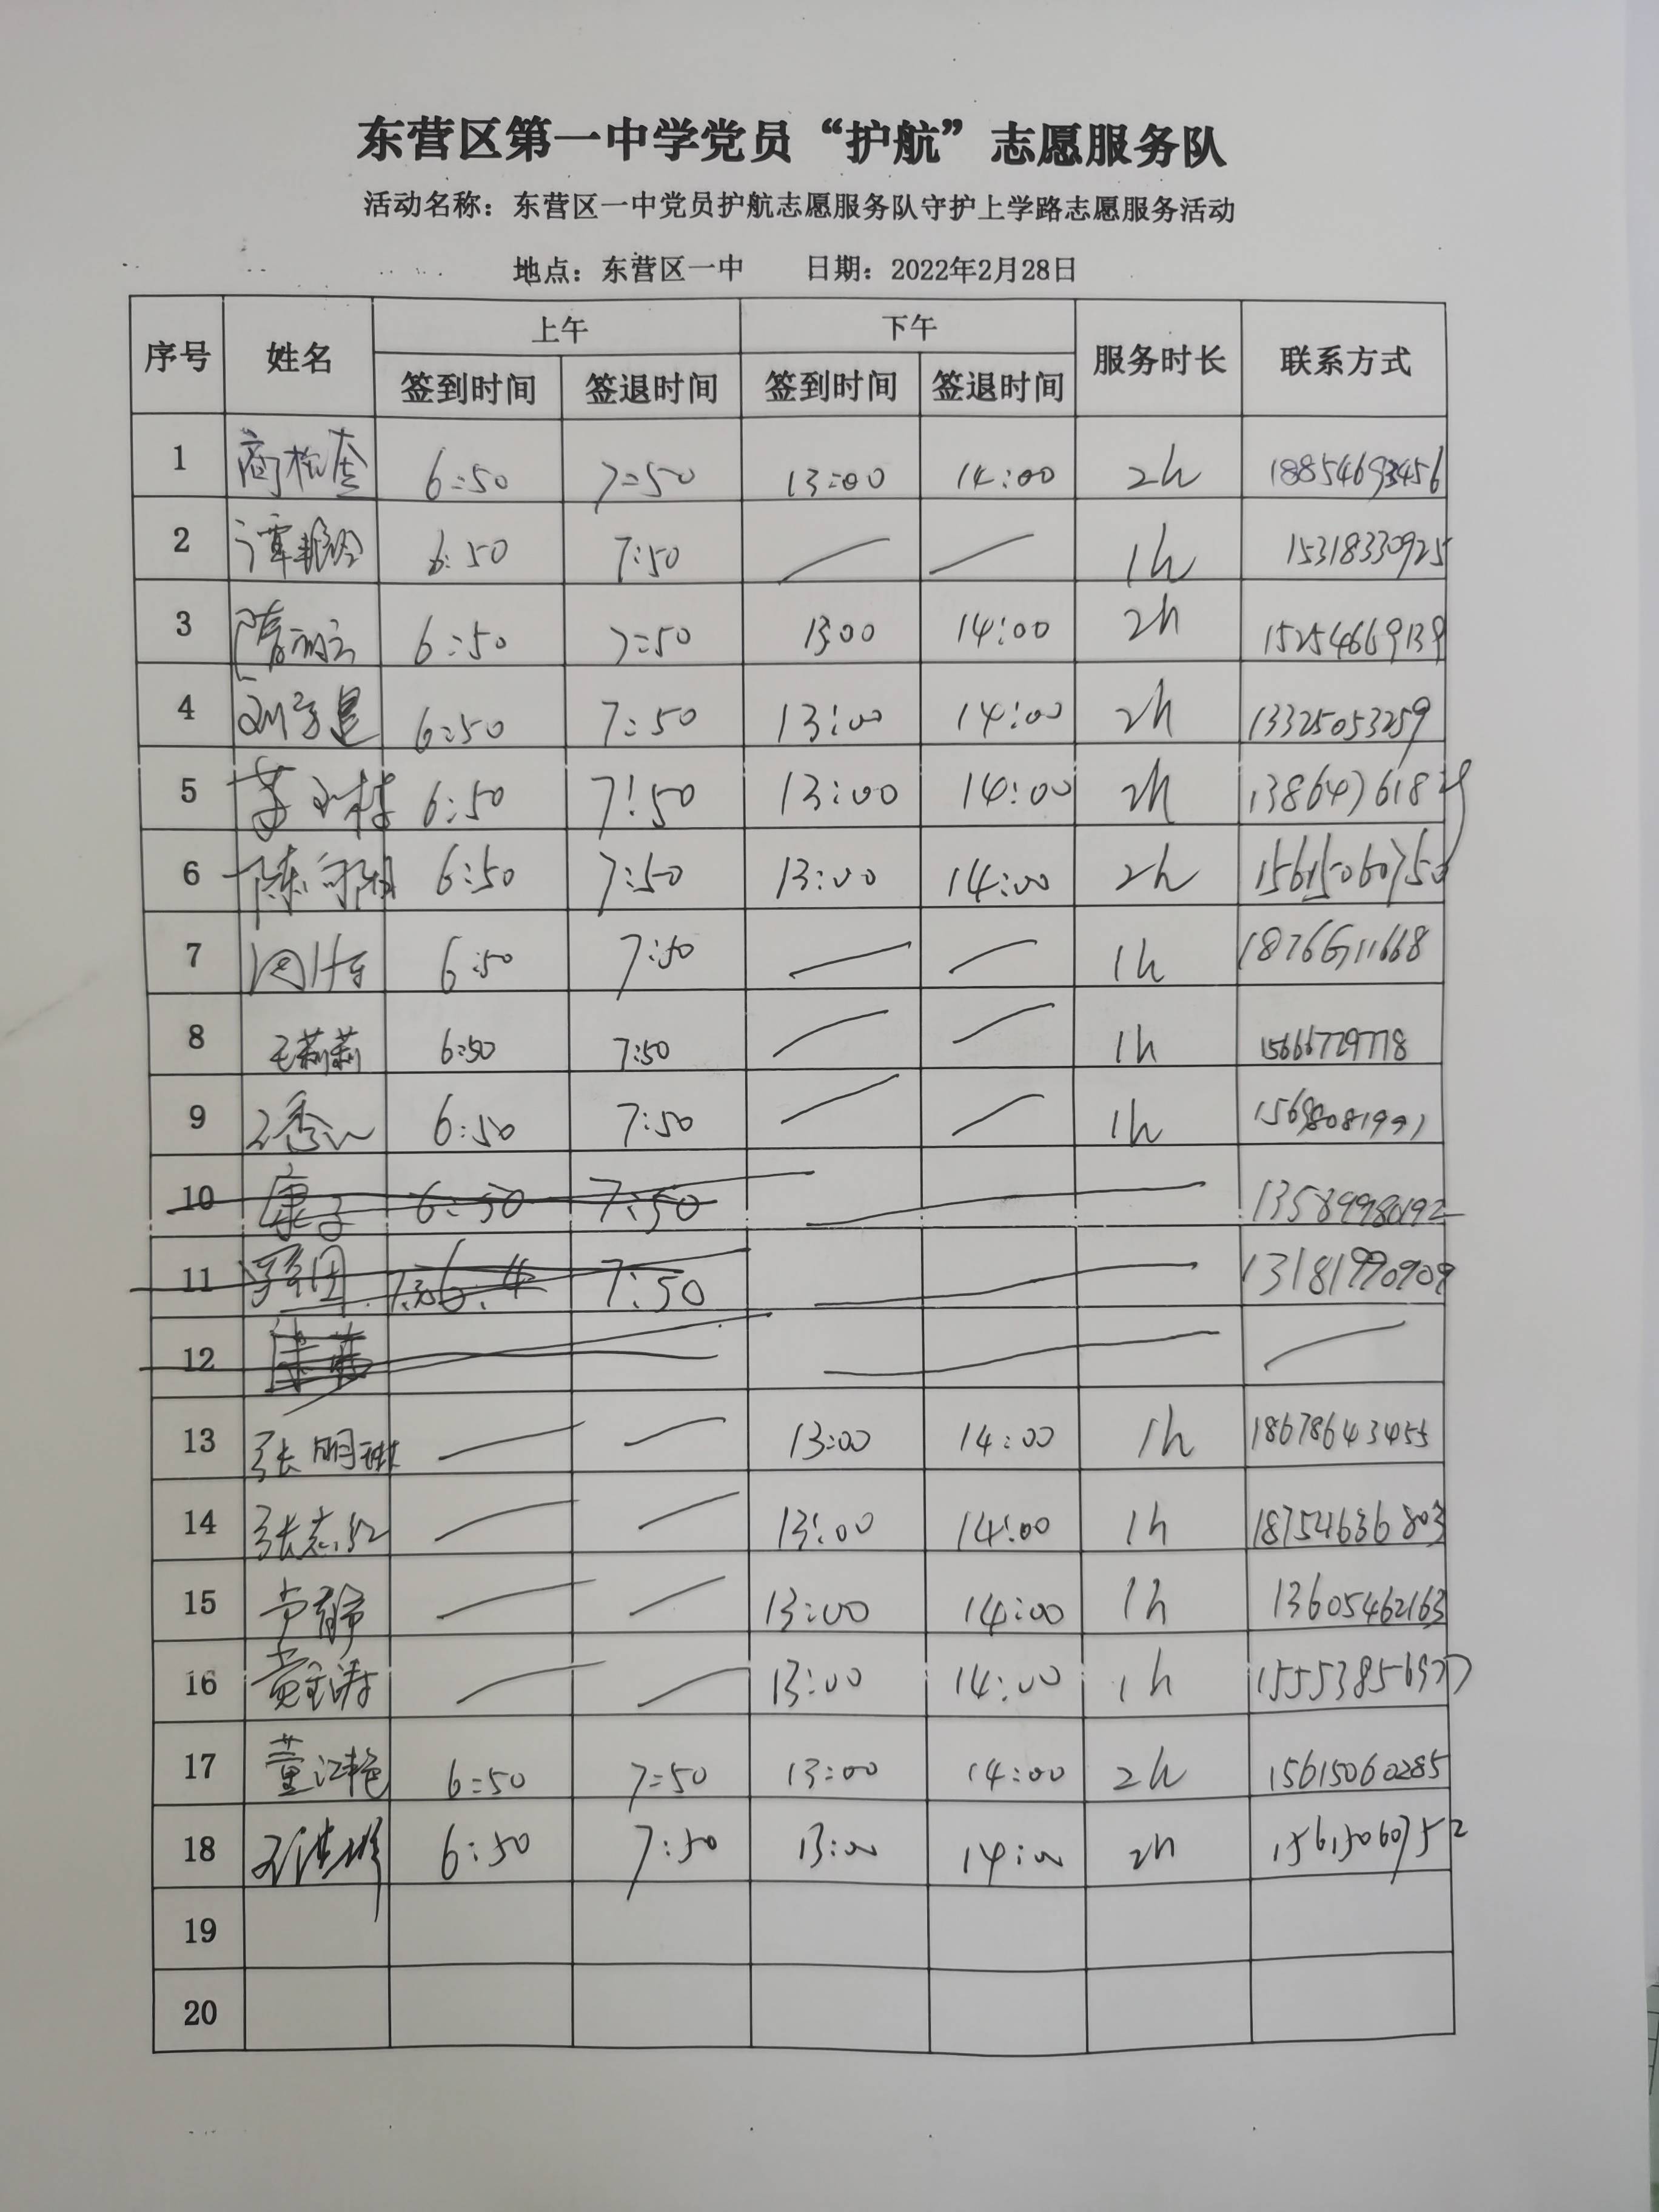 东营区第一中学党员“护航”志愿服务队
活动名称：东营区一中党员护航志愿服务队守护上学路志愿服务活动
地点：东营区一中 日期：2022年2月28日
序号 姓名 上午 下午 服务时长 联系方式
签到时间 签退时间 签到时间 签退时间
1 6:50 7:50 13:00 14:00 2h 18854693456
2 6:50 7:50 1h 15318330925
3 6:50 7:50 13:00 14:00 2h 15254669139
4 6:50 7:50 13:00 14:00 2h 13325053259
5 6:50 7:50 13:00 14:00 2h
6 6:50 7:50 13:00 14:00 2h 15615060750
7 6:50 7:50 1h
8 毛莉莉 6:50 7:50 1h 15666729778
9 6:50 7:50 1h
10 6:50 7:50 13589980192
11 7:50 13181990909
12
13 张明琳 13:00 14:00 1h 18678643455
14 张志红 13:00 14:00 1h 18754636803
15 卢静 13:00 14:00 1h 13605462163
16 13:00 14:00 1h
17 董江艳 6:50 7:50 13:00 14:00 2h 15615060285
18 6:50 7:50 13:00 14:00 2h 15615060752
19
20